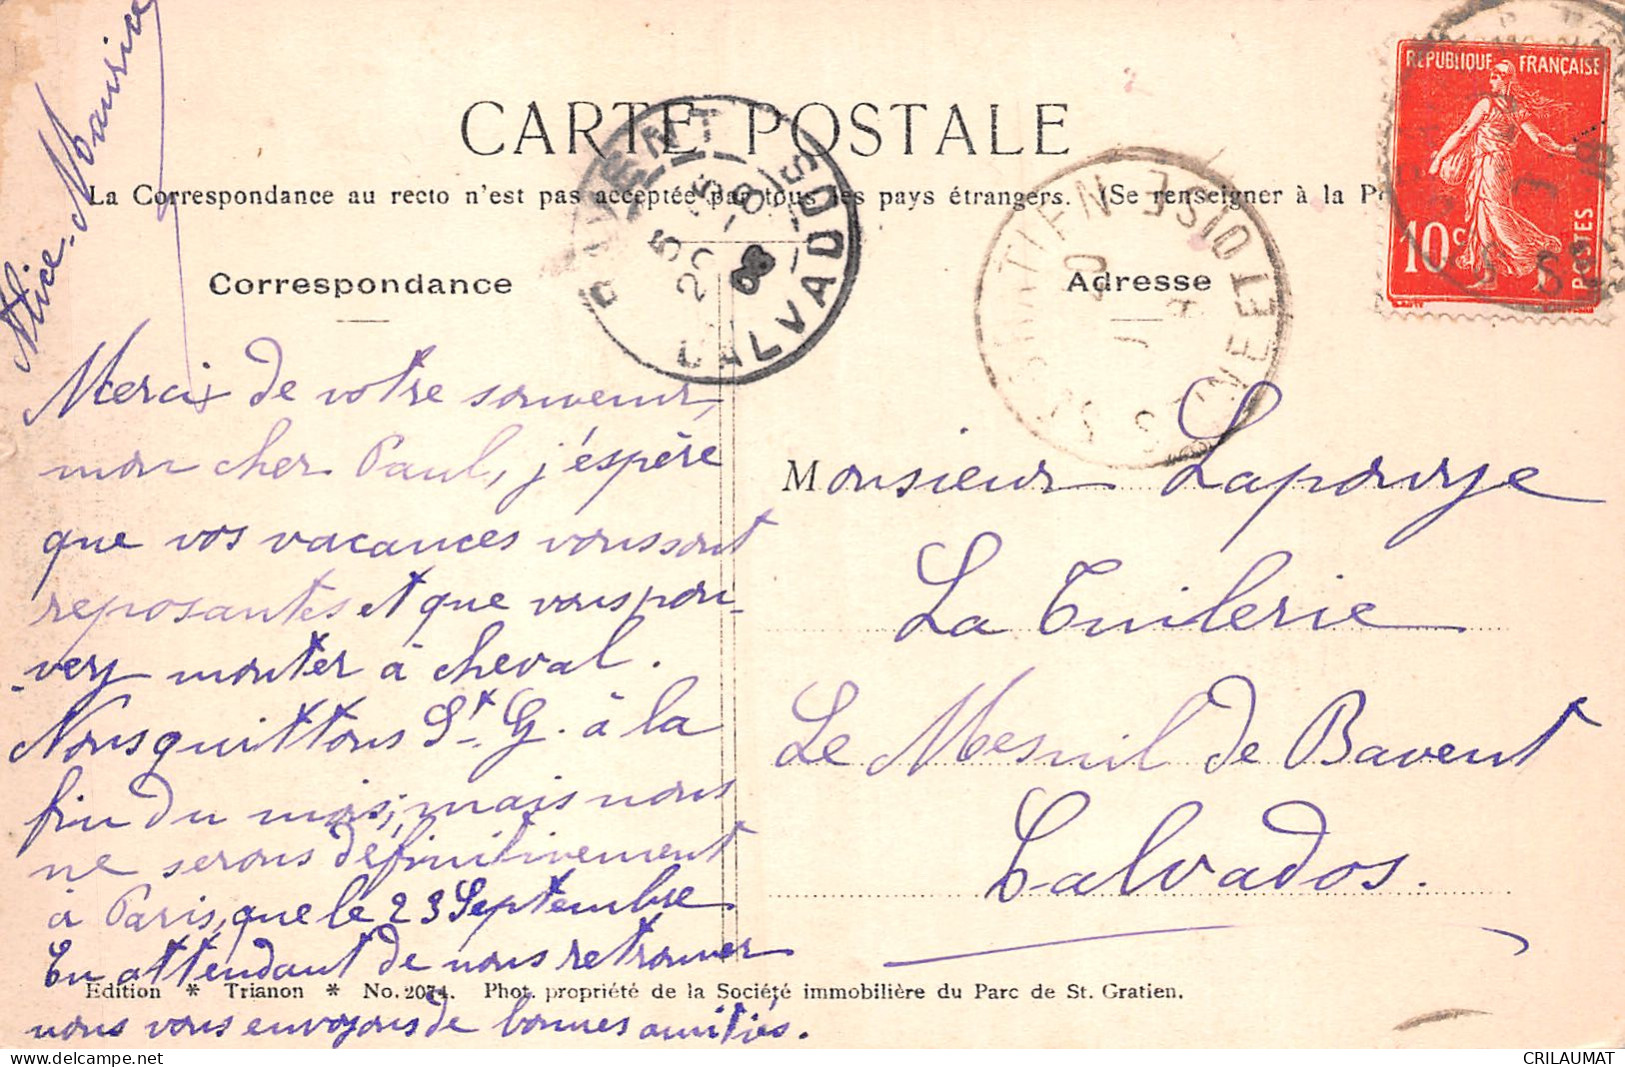 CARTE POSTALE
La Correspondance au recto n'est pas acceptée par tous les pays étrangers. (Se renseigner à la
Correspondance
Adresse
REPUBLIQUE FRANÇAISE
10c
POSTES
BAVENT
CALVADOS
ST GRATIEN
SEINE ET OISE
Alice-Maurice
Merci de votre souvenir,
mon cher Paul, j'éspère
que vos vacances vous sont
reposantes et que vous pou-
-vez monter à cheval.
Nous quittons St. G. à la
fin du mois; mais nous
ne serons définitivement
à Paris, que le 23 Septembre
En attendant de nous retrouver
nous vous envoyons de bonnes amitiés.
Monsieur Laporrye
La Tuilerie
Le Mesnil de Bavent
Calvados.
Edition * Trianon * No. 2074. Phot. propriété de la Société immobilière du Parc de St. Gratien.
CRILAUMAT